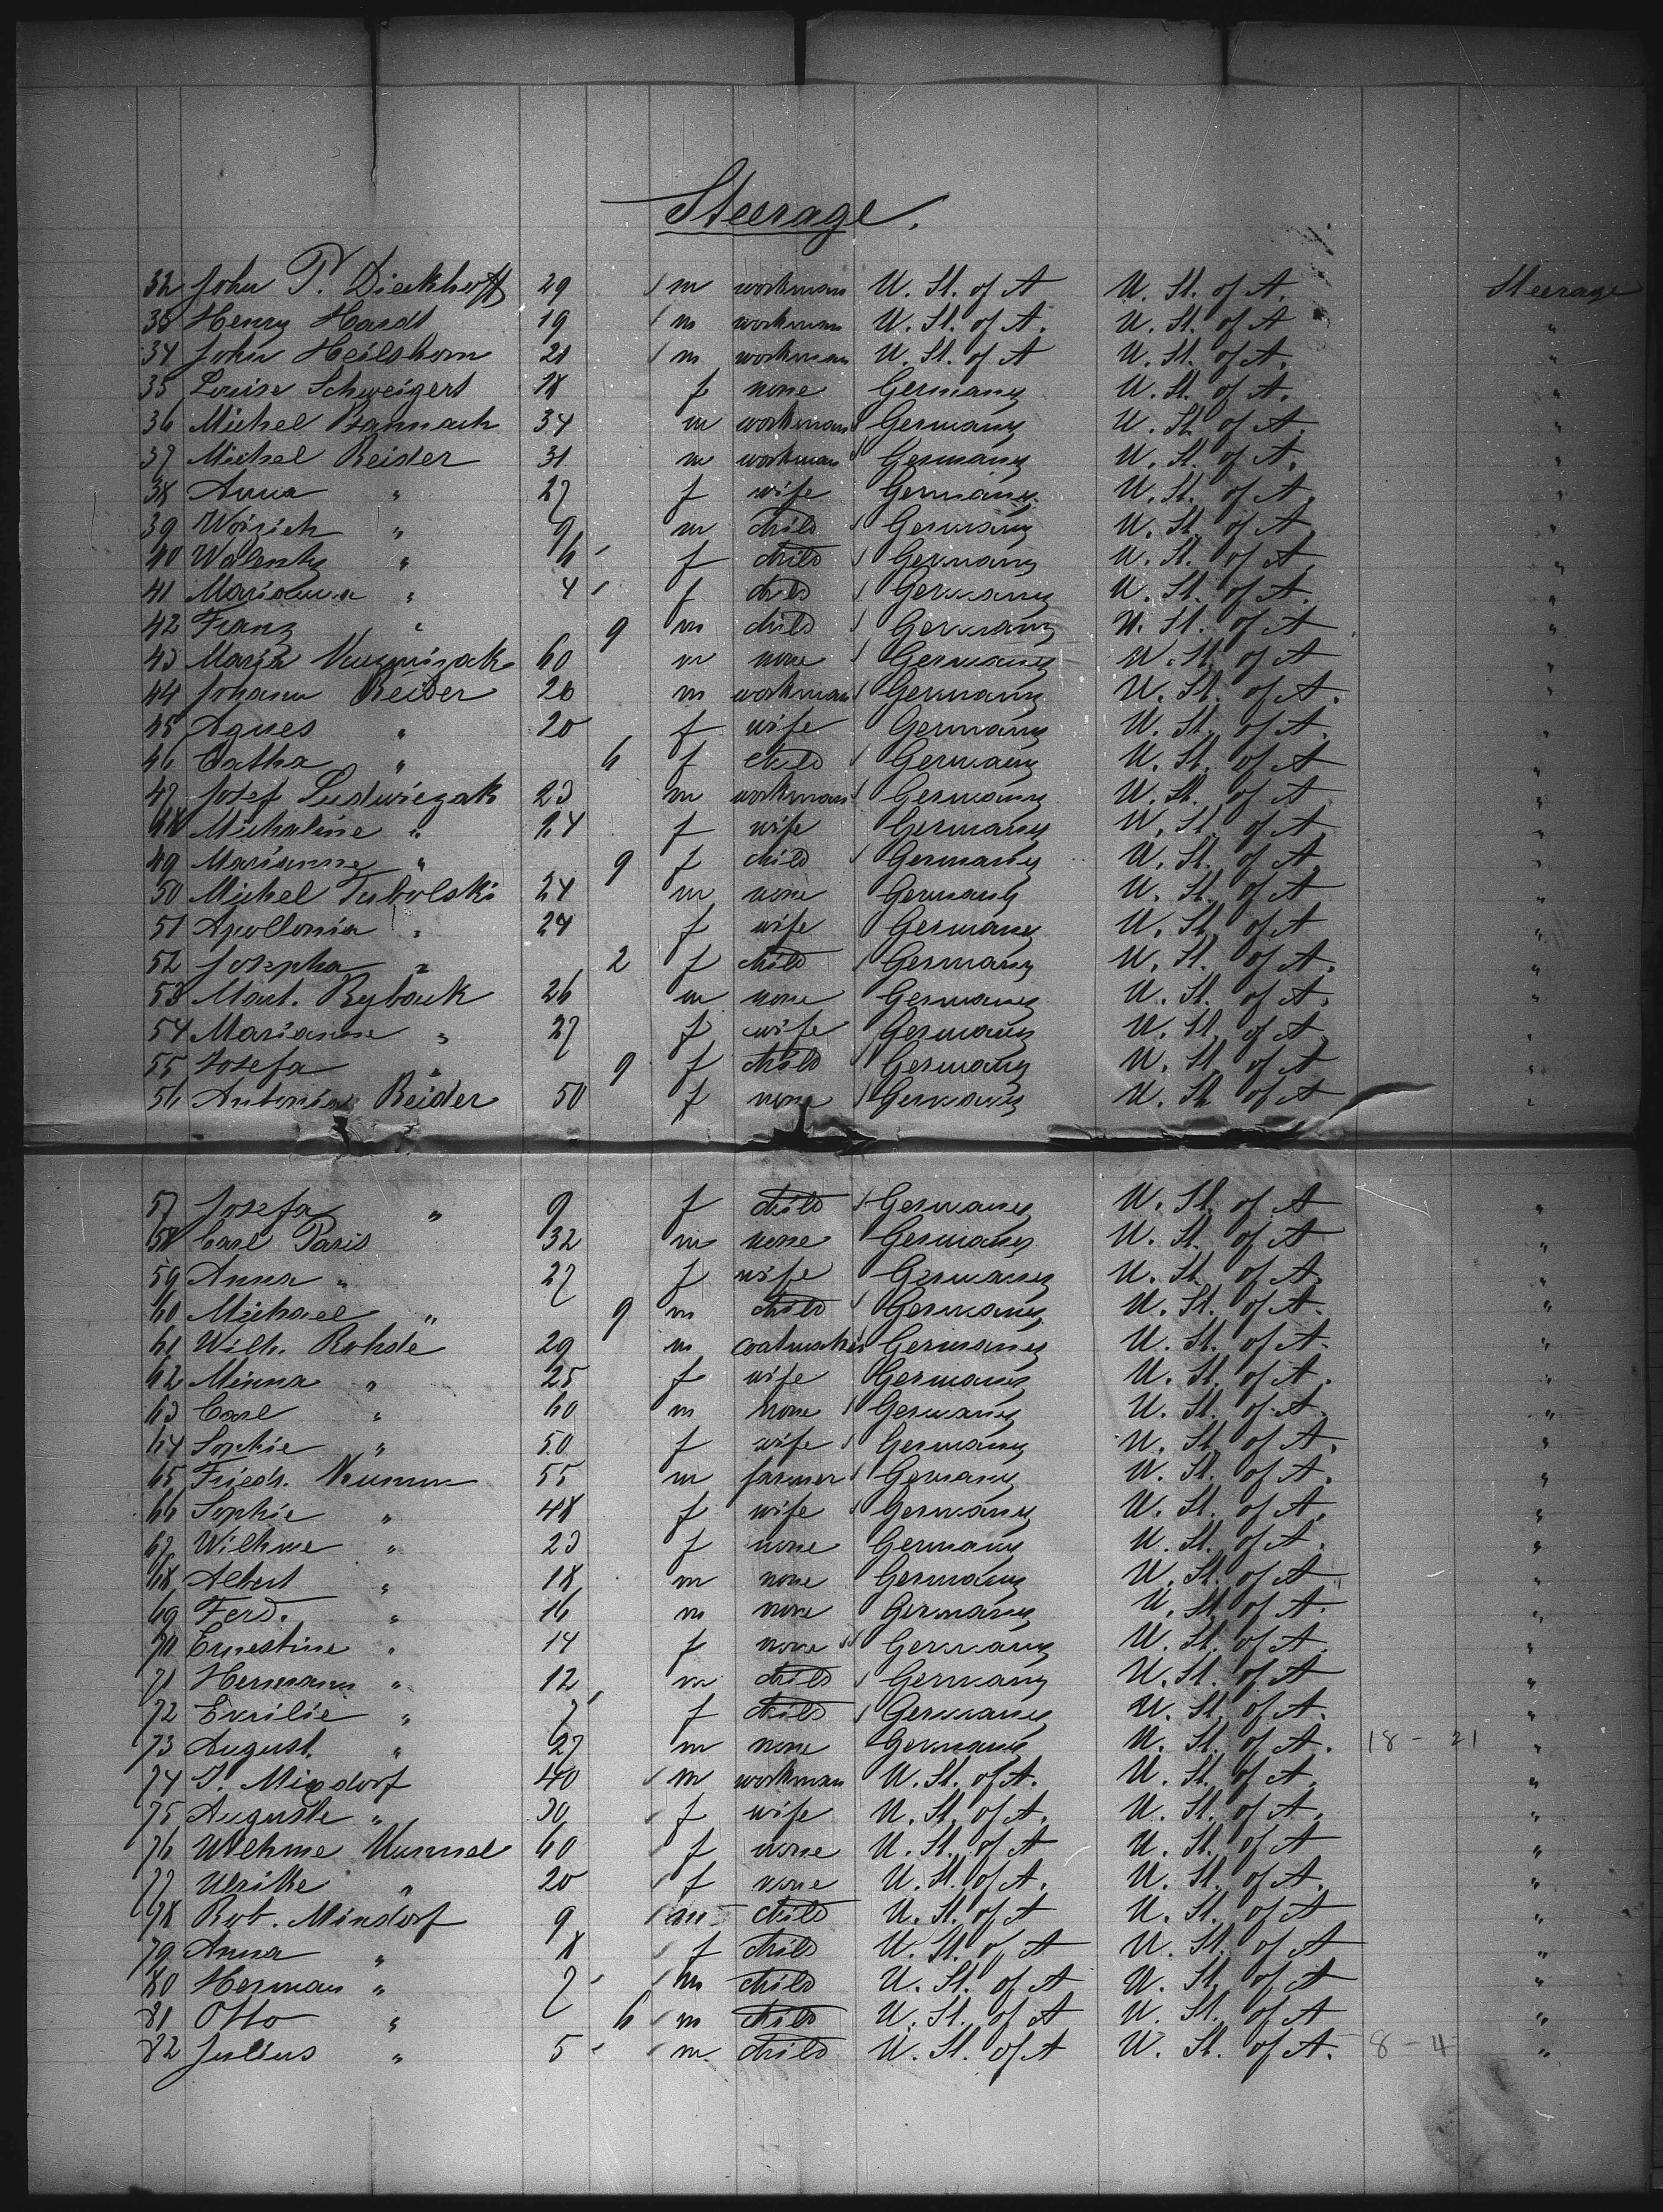 Steerage.
32 John P. Dieckhoff 29 m workman U. St. of A U. St. of A. Steerage
33 Henry Hardt 19 m workman U. St. of A. U. St. of A "
34 John Heilshorn 21 m workman U. St. of A U. St. of A. "
35 Louise Schweigert 18 f none Germany U. St. of A. "
36 Michel Bannach 34 m workman Germany U. St. of A. "
37 Michel Reider 31 m workman Germany U. St. of A. "
38 Anna " 27 f wife Germany U. St. of A. "
39 Woizich " 9 m child Germany U. St. of A. "
40 Walenty " 6 f child Germany U. St. of A "
41 Marianna " 4 f child Germany U. St. of A. "
42 Franz " 9 m child Germany U. St. of A "
43 60 m none Germany U. St. of A "
44 Johann Reider 26 m workman Germany U. St. of A. "
45 Agnes " 20 f wife Germany U. St. of A. "
46 Catha " 6 f child Germany U. St. of A "
47 Josef Ludwiczak 23 m workman Germany U. St. of A "
48 Michaline " 24 f wife Germany U. St. of A "
49 Marianne " 9 f child Germany U. St. of A. "
50 Michel Tubolski 24 m none Germany U. St. of A "
51 Apollonia " 24 f wife Germany U. St. of A "
52 Josepha " 2 f child Germany U. St. of A. "
53 Mart. Rybarik 26 m none Germany U. St. of A. "
54 Marianne " 27 f wife Germany U. St. of A "
55 Josefa " 9 f child Germany U. St. of A "
56 Antonia Reider 50 f none Germany U. St. of A "
57 Josefa " 9 f child Germany U. St. of A "
58 Carl Paris 32 m none Germany U. St. of A "
59 Anna " 27 f wife Germany U. St. of A. "
60 Michael " 9 m child Germany U. St. of A. "
61 Wilh. Rohde 29 m Germany U. St. of A. "
62 Minna " 25 f wife Germany U. St. of A. "
63 Carl " 60 m none Germany U. St. of A. "
64 Sophie " 50 f wife Germany U. St. of A. "
65 Friedr. Numm 55 m farmer Germany U. St. of A. "
66 Sophie " 48 f wife Germany U. St. of A. "
67 Wilhme " 23 f none Germany U. St. of A. "
68 Albert " 18 m none Germany U. St. of A "
69 Ferd. " 16 m none Germany U. St. of A. "
70 Ernestine " 14 f none Germany U. St. of A. "
71 Hermann " 12 m child Germany U. St. of A "
72 Emilie " 7 f child Germany U. St. of A. "
73 August " 27 m none Germany U. St. of A. 18 - 21 "
74 J. Mixdorf 40 m workman U. St. of A. U. St. of A. "
75 Auguste " 30 f wife U. St. of A. U. St. of A. "
76 Wilhme Kummel 60 f none U. St. of A U. St. of A "
77 Ulrike " 20 f none U. St. of A. U. St. of A. "
78 Rob. Mixdorf 9 m child U. St. of A U. St. of A "
79 Anna " 8 f child U. St. of A U. St. of A "
80 Herman " 7 m child U. St. of A U. St. of A "
81 Otto " 6 m child U. St. of A U. St. of A "
82 Julius " 5 m child U. St. of A U. St. of A. 8 - 4 "